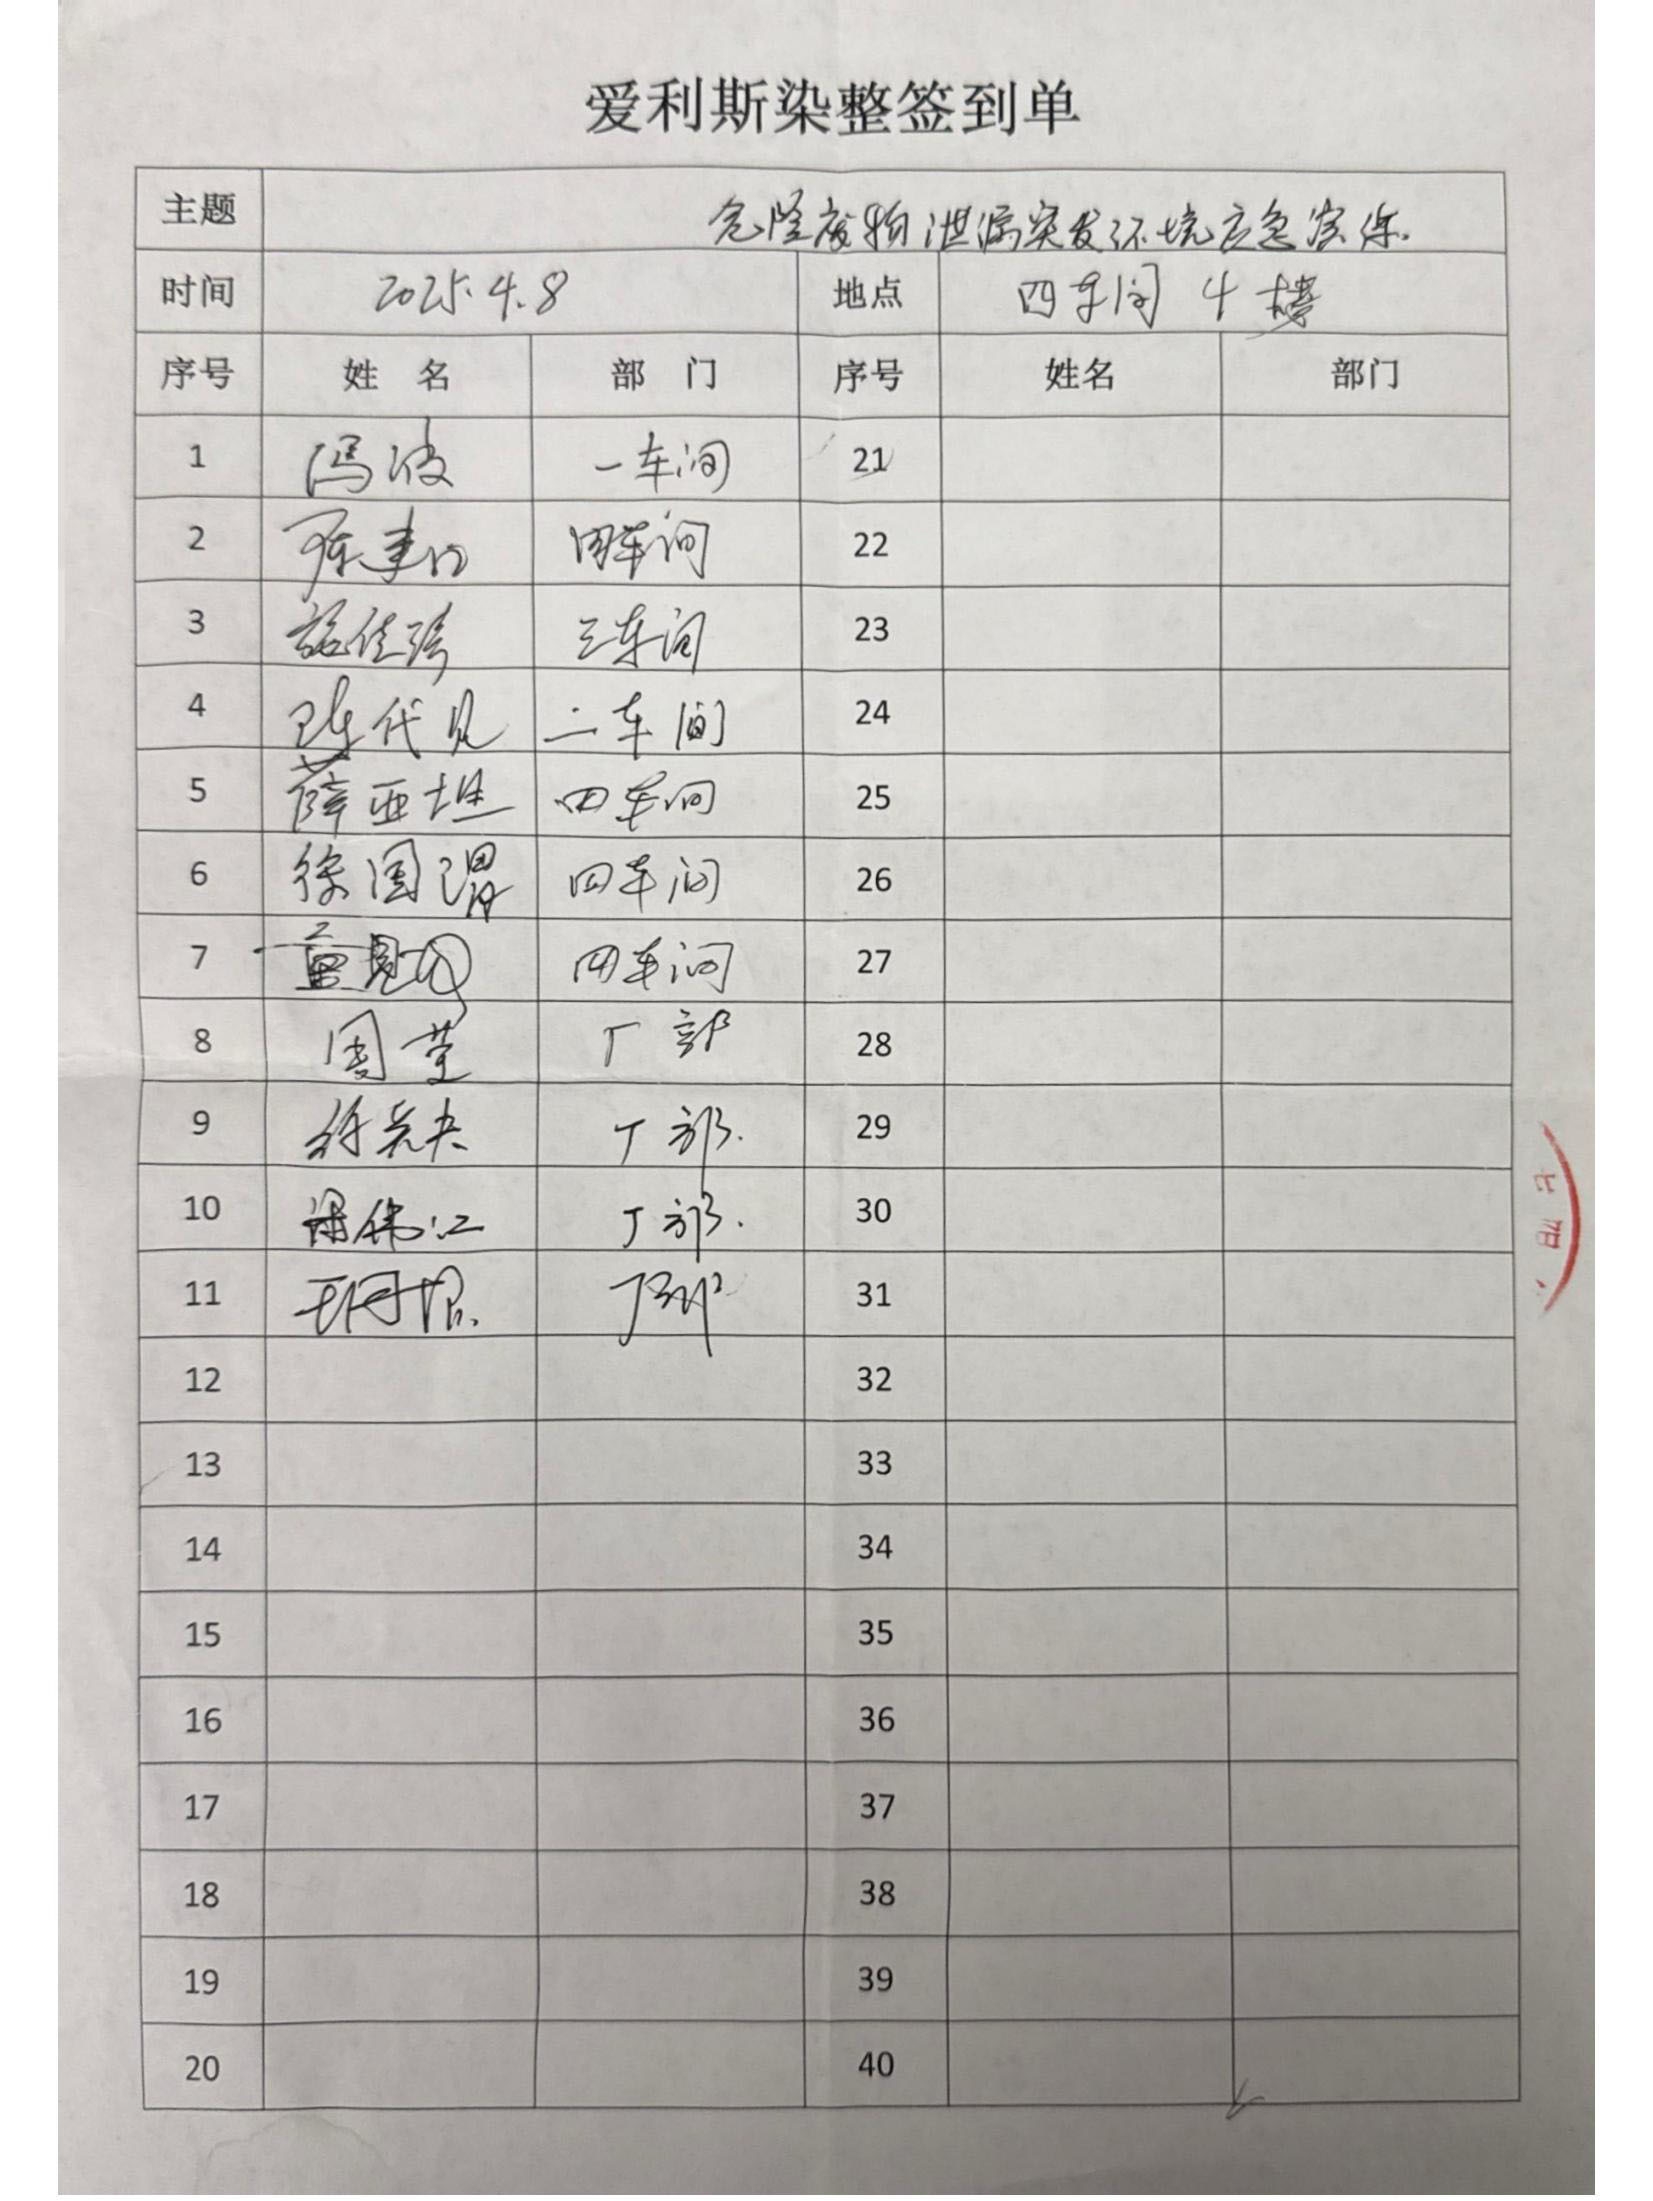 爱利斯染整签到单
主题 危险废物泄漏突发环境应急演练.
时间 2025.4.8 地点 四车间 4楼
序号 姓 名 部 门 序号 姓名 部门
1 冯波 一车间 21
2 四车间 22
3 施佳琦 三车间 23
4 陈代见 二车间 24
5 薛亚坦 四车间 25
6 徐国渭 四车间 26
7 四车间 27
8 周莹 厂部 28
9 厂部. 29
10 梁伟江 厂部. 30
11 厂部 31
12 32
13 33
14 34
15 35
16 36
17 37
18 38
19 39
20 40